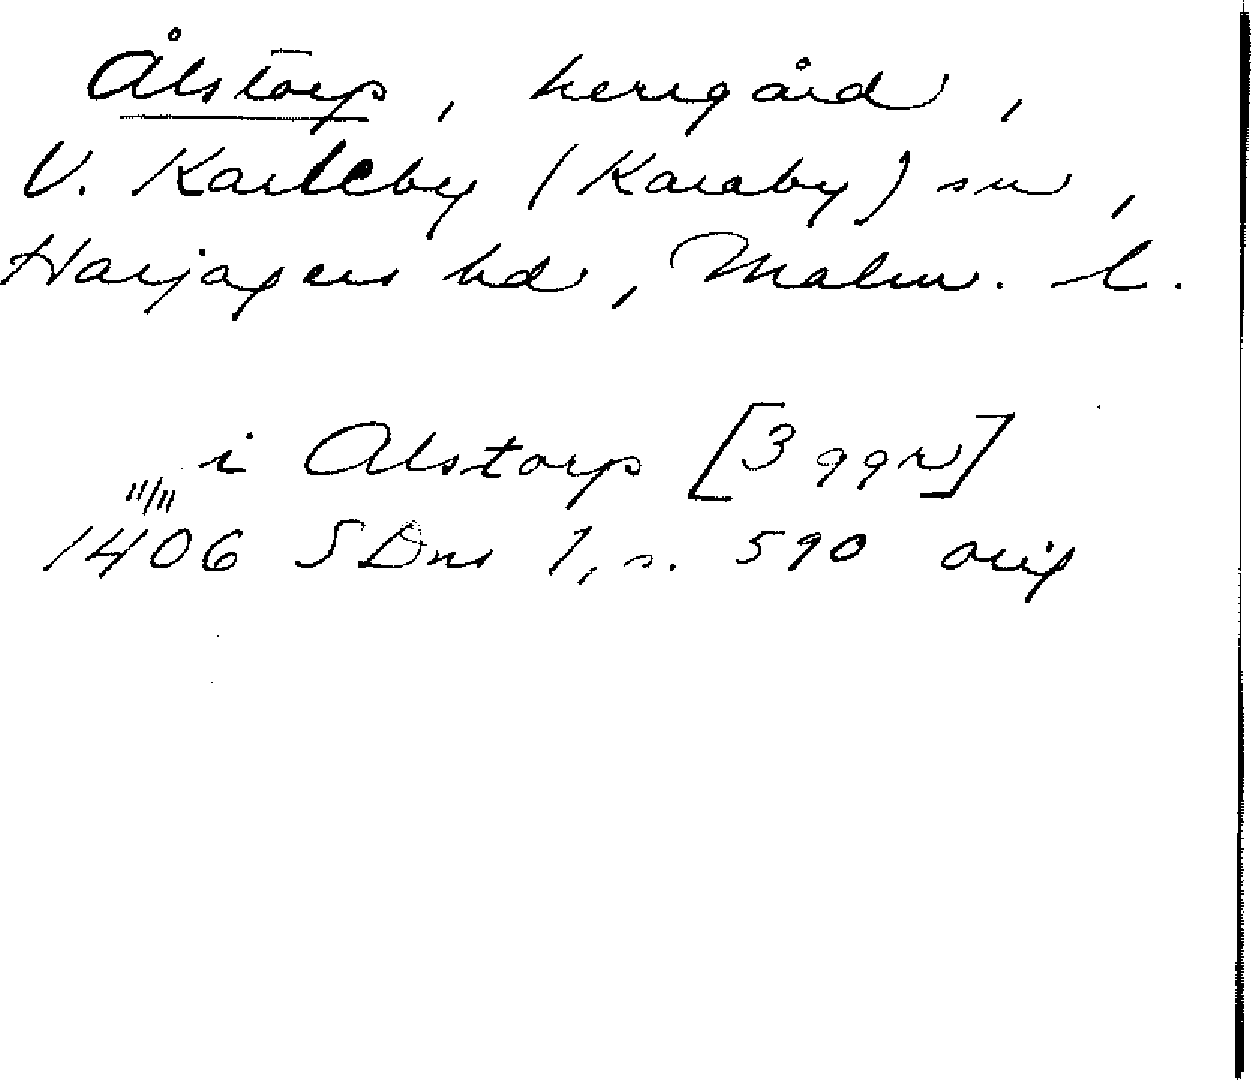 Ålstorp, herrgård,
V. Karleby (Karaby) sn,
Harjagers hd, Malm. l.
i Alstorp [3 ggr]
11/11
1406 SDns 1, s. 590 orig